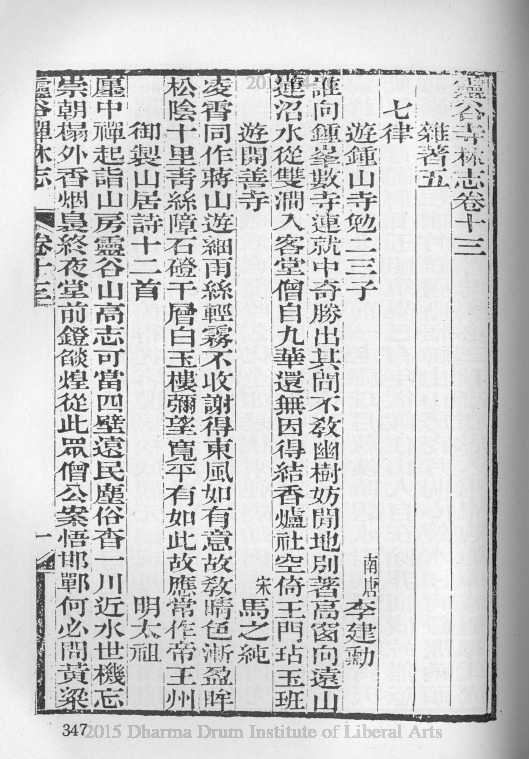 靈谷寺林志卷十三
雜著五
七律
遊鍾山寺勉二三子 南唐 李建勳
誰向鍾峯數寺連就中奇勝出其間不教幽樹妨閒地別著高窗向遠山
蓮沼水從雙澗入客堂僧自九華還無因得結香爐社空倚王門玷玉班
遊開善寺 宋 馬之純
凌霄同作蔣山遊細雨絲輕霧不收謝得東風如有意故教晴色漸盈眸
松陰十里青絲障石磴千層白玉樓彌望寬平有如此故應常作帝王州
御製山居詩十二首 明太祖
廛中禪起詣山房靈谷山高志可當四壁遠民塵俗杳一川近水世機忘
崇朝榻外香烟裊終夜堂前鐙燄煌從此眾僧公案悟邯鄲何必問黃粱
靈谷禪林志 卷十三 一
347
2015 Dharma Drum Institute of Liberal Arts